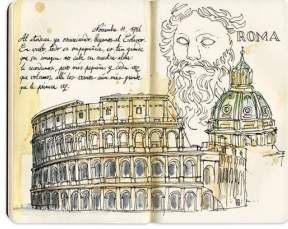 Noviembre 11, 1786
Al atardecer, ya oscureciendo, llegamos al Coliseo.
En verlo, todo es pequeñito, es tan grande
que su imagen no cabe en nuestra alma.
Lo recordamos, pero más pequeño y cada vez
que volvamos, allí lo vemos aún más grande
que la primera vez.
ROMA